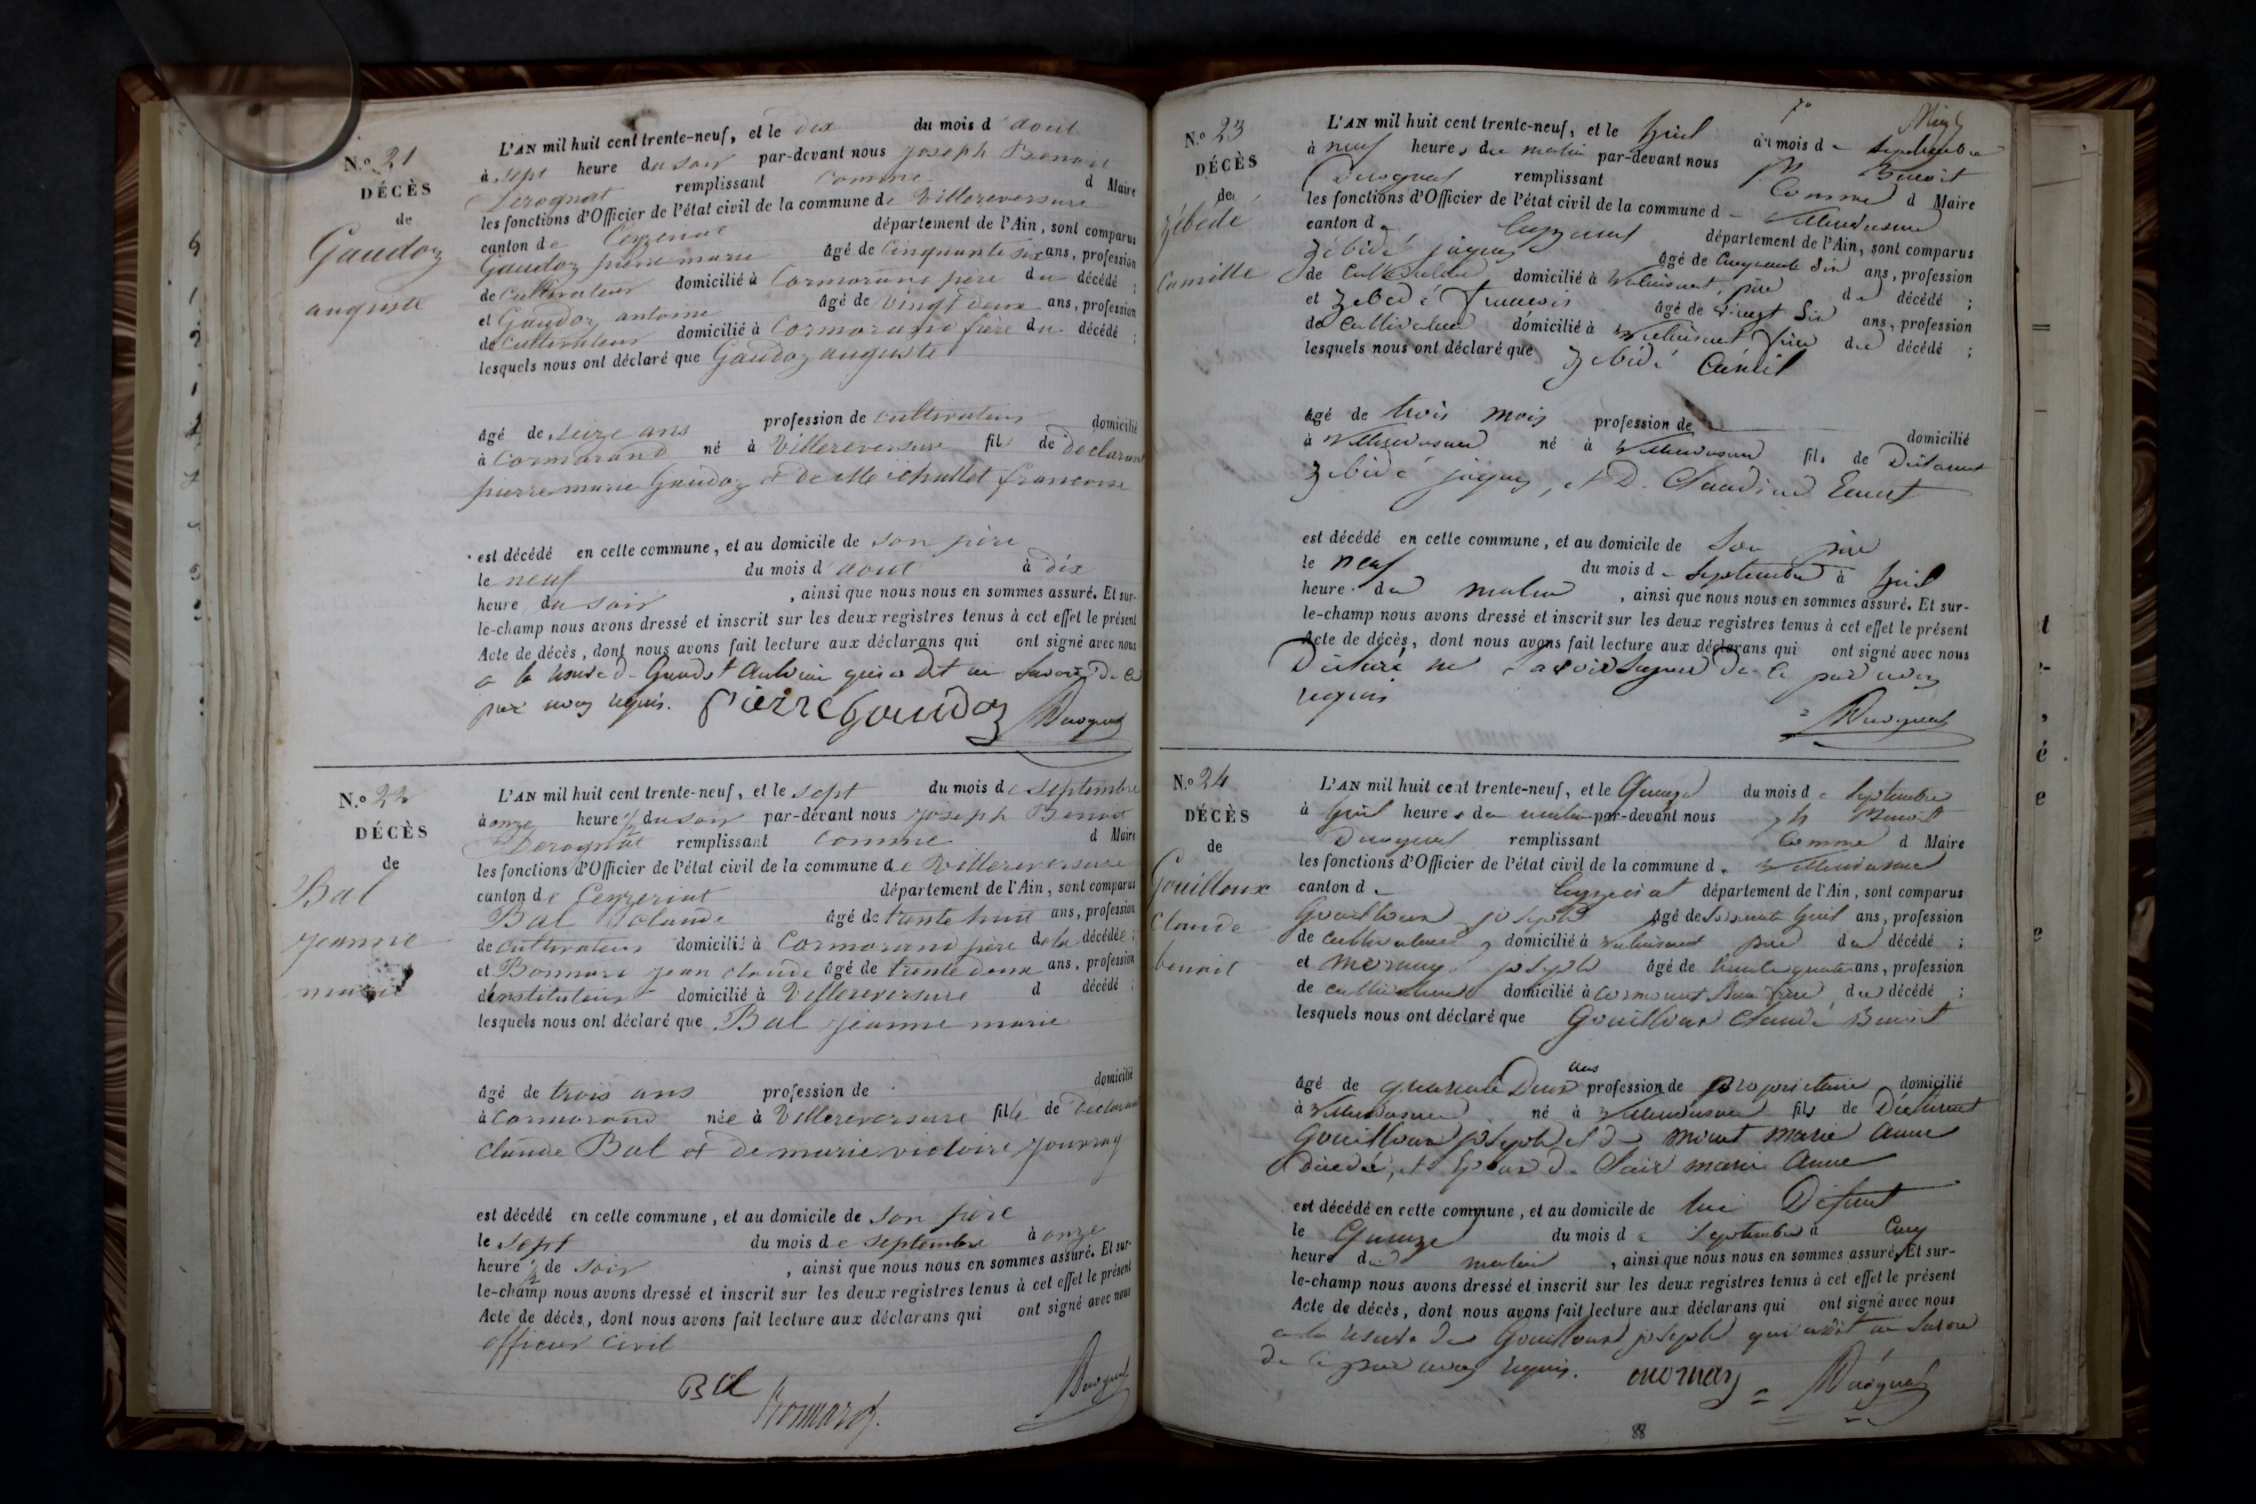 N.o 21
DÉCÈS
de
Gaudoz
auguste
L'AN mil huit cent trente-neuf, et le dix du mois d'aout
à sept heure du soir par-devant nous joseph Benoit
Derognat remplissant comme d Maire
les fonctions d'Officier de l'état civil de la commune de Villereversure
canton de Ceyzeriat département de l'Ain, sont comparus
Gaudoz pierre marie âgé de Cinquante six ans, profession
de Cultivateur domicilié à Cormorand père du décédé ;
et Gaudoz antoine âgé de vingt deux ans, profession
de Cultivateur domicilié à Cormorand frère du décédé ;
lesquels nous ont déclaré que Gaudoz auguste
âgé de seize ans profession de cultivateur domicilié
à Cormorand né à Villereversure fils de declarant
pierre marie Gaudoz et de françoise
est décédé en cette commune, et au domicile de son père
le neuf du mois d'aout à dix
heure du soir , ainsi que nous nous en sommes assuré. Et sur-
le-champ nous avons dressé et inscrit sur les deux registres tenus à cet effet le présent
Acte de décès, dont nous avons fait lecture aux déclarans qui ont signé avec nous
qui a dit ne savoir de ce
par nous requis. Pierre Gaudoz Derognat
N.o 22
DÉCÈS
de
Bal
jeanne
marie
L'AN mil huit cent trente-neuf, et le sept du mois de septembre
à onze heure ½ du soir par-dévant nous joseph Benoit
Derognat remplissant comme d Maire
les fonctions d'Officier de l'état civil de la commune de Villereversure
canton de Ceyzeriat département de l'Ain, sont comparus
Bal Claude âgé de trente huit ans, profession
de cultivateur domicilié à Cormorand père de la décédée ;
et Bonnard jean claude âgé de trente deux ans, profession
d'instituteur domicilié à Villereversure d décédé ;
lesquels nous ont déclaré que Bal jeanne marie
âgé de trois ans profession de domicilié
à Cormorand née à Villereversure fille de declarant
claude Bal et de marie victoire
est décédé en cette commune, et au domicile de son père
le sept du mois de septembre à onze
heure ½ de soir , ainsi que nous nous en sommes assuré. Et sur-
le-champ nous avons dressé et inscrit sur les deux registres tenus à cet effet le présent
Acte de décès, dont nous avons fait lecture aux déclarans qui ont signé avec nous
officier civil
Bal Bonnard Derognat
N.o 23
DÉCÈS
de
Zébédé
Camille
L'AN mil huit cent trente-neuf, et le huit du mois de septembre
à neuf heures du matin par-devant nous Benoit
Derognat remplissant Comme d Maire
les fonctions d'Officier de l'état civil de la commune d Villereversure
canton d Ceyzeriat département de l'Ain, sont comparus
Zébédé jaques âgé de Cinquante Six ans, profession
de Cultivateur domicilié à père du décédé ;
et Zébédé François âgé de vingt Six ans, profession
de Cultivateur domicilié à frère du décédé ;
lesquels nous ont déclaré que Zébédé Camil
âgé de trois mois profession de domicilié
à Villereversure né à Villereversure fils de Déclarant
Zébédé jaques, et D. Claudine
est décédé en cette commune, et au domicile de Son père
le neuf du mois d septembre à huit
heure du matin , ainsi que nous nous en sommes assuré. Et sur-
le-champ nous avons dressé et inscrit sur les deux registres tenus à cet effet le présent
Acte de décès, dont nous avons fait lecture aux déclarans qui ont signé avec nous
Déclaré ne savoir signer de ce par nous
requis
Derognat
N.o 24
DÉCÈS
de
Gouilloux
Claude
benoit
L'AN mil huit cent trente-neuf, et le Quinze du mois d septembre
à huit heures du matin par-devant nous jh Benoit
Derognat remplissant Comme d Maire
les fonctions d'Officier de l'état civil de la commune d Villereversure
canton d Ceyzeriat département de l'Ain, sont comparus
Gouilloux joseph âgé de Soixante huit ans, profession
de cultivateur domicilié à père du décédé ;
et Mornay joseph âgé de trente quatre ans, profession
de cultivateur domicilié à Beau frère du décédé ;
lesquels nous ont déclaré que Gouilloux Claude Benoit
âgé de quarante Deux ans profession de proprietaire domicilié
à Villereversure né à Villereversure fils de Déclarant
Gouilloux joseph et de marie anne
décédée, et Epoux de marie anne
est décédé en cette commune, et au domicile de lui Défunt
le Quinze du mois d septembre à Cinq
heure du matin , ainsi que nous nous en sommes assuré. Et sur-
le-champ nous avons dressé et inscrit sur les deux registres tenus à cet effet le présent
Acte de décès, dont nous avons fait lecture aux déclarans qui ont signé avec nous
Gouilloux joseph qui a dit ne savoir
de ce par nous requis. mornay Derognat
88